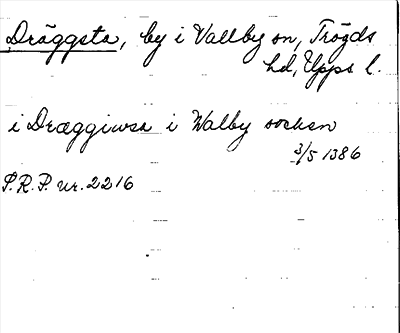 Dräggsta, by i Vallby sn, Trögds
hd, Upps l.
i Dræggiwsa i Walby sochsn
3/5 1386
S.R.P. nr. 2216